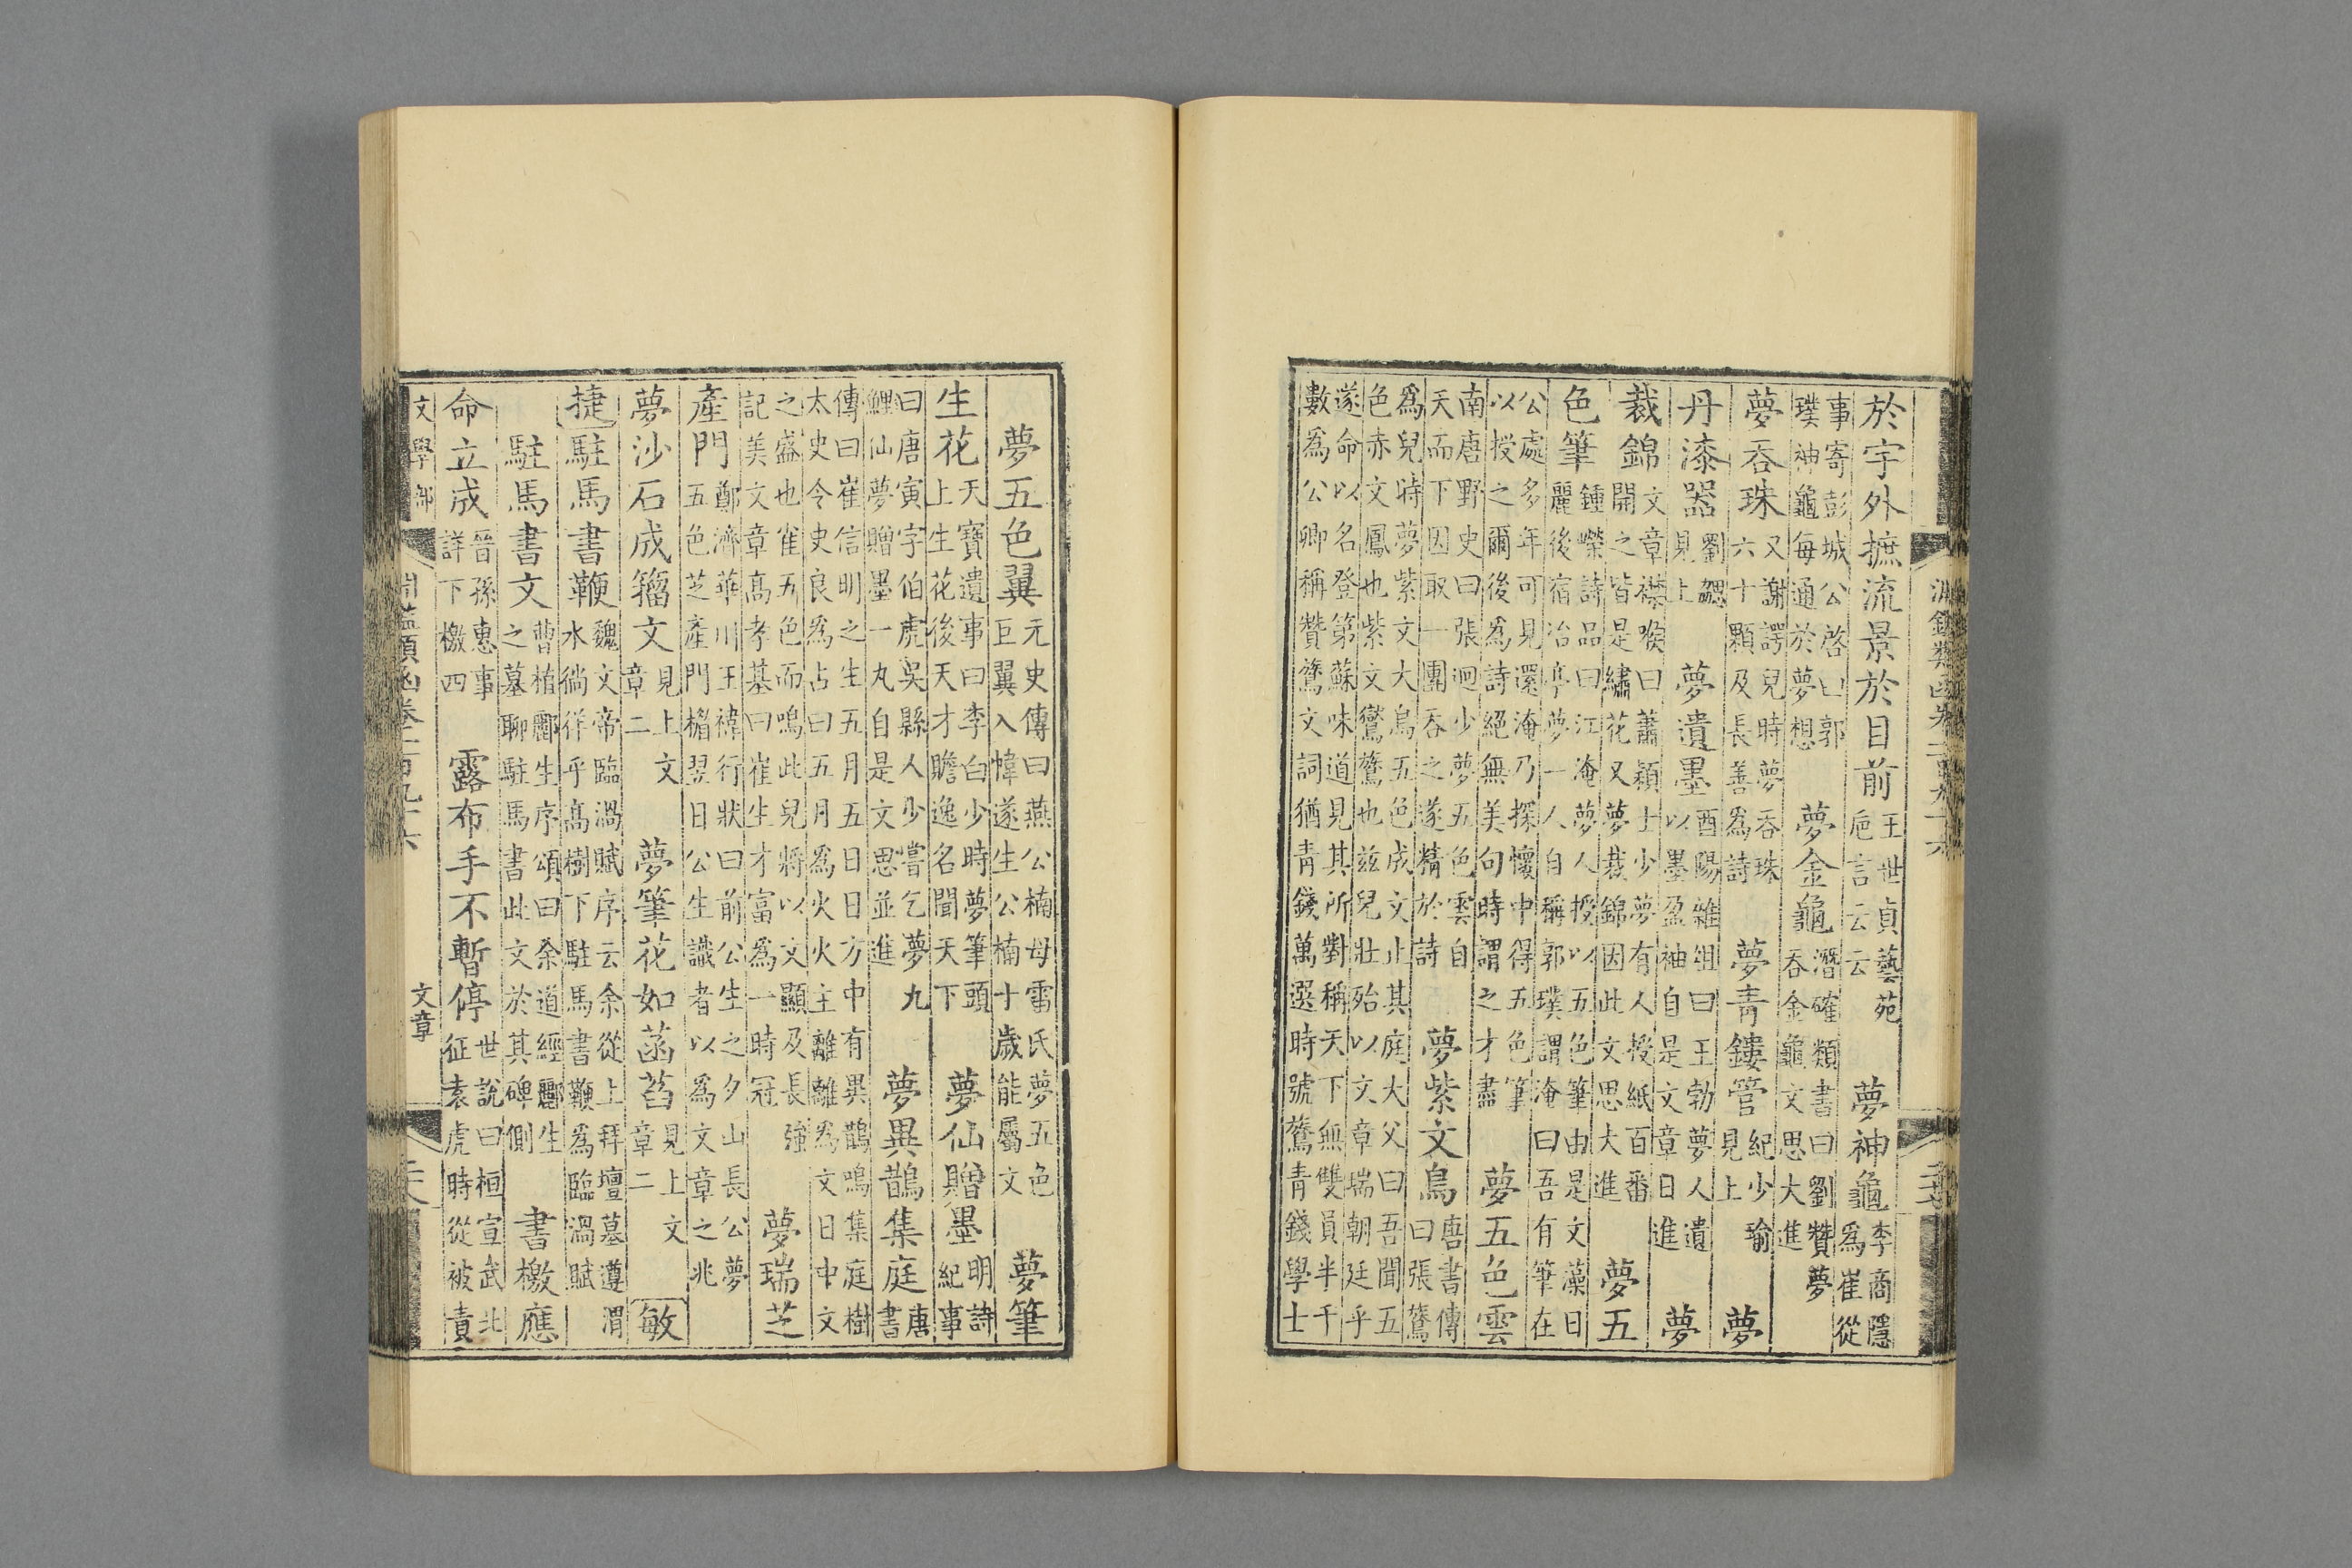 淵鑑類函卷一百九十六
於宇外摭流景於目前王世貞藝苑巵言云云夢神龜李商隱爲崔從
事寄彭城公啓曰郭璞神龜每通於夢想夢金龜潛確類書曰劉贊夢吞金龜文思大進
夢吞珠又謝諤兒時夢吞珠六十顆及長善爲詩夢青鏤管紀少瑜見上夢
丹漆器劉勰見上夢遺墨酉陽雜俎曰王勃夢人遺以墨盈袖自是文章日進夢
裁錦文章襟喉曰蕭穎士少夢有人授紙百番開之皆是繡花又夢裁錦因此文思大進夢五
色筆鍾嶸詩品曰江淹夢人授以五色筆由是文藻日麗後宿冶亭夢一人自稱郭璞謂淹曰吾有筆在
公處多年可見還淹乃探懷中得五色筆以授之爾後爲詩絕無美句時謂之才盡夢五色雲
南唐野史曰張迥少夢五色雲自天而下因取一團吞之遂精於詩夢紫文鳥唐書傳曰張鷟
爲兒時夢紫文大鳥五色成文止其庭大父曰吾聞五色赤文鳳也紫文鸑鷟也茲兒壯殆以文章瑞朝廷乎
遂命以名登第蘇味道見其所對稱天下無雙員半千數爲公卿稱鷟文詞猶青錢萬選時號鷟青錢學士
夢五色翼元史傳曰燕公楠母雷氏夢五色巨翼入幃遂生公楠十歲能屬文夢筆
生花天寶遺事曰李白少時夢筆頭上生花後天才贍逸名聞天下夢仙贈墨明詩紀事
曰唐寅字伯虎吳縣人少嘗乞夢九鯉仙夢贈墨一丸自是文思並進夢異鵲集庭唐書
傳曰崔信明之生五月五日日方中有異鵲鳴集庭樹太史令史良爲占曰五月爲火火主離離爲文日中文
之盛也雀五色而鳴此兒將以文顯及長強記美文章高孝基曰崔生才富爲一時冠夢瑞芝
產門鄭濟華川王禕行狀曰前公生之夕山長公夢五色芝產門楣翌日公生識者以爲文章之兆
夢沙石成籀文見上文章二夢筆花如菡萏見上文章二敏
捷駐馬書鞭魏文帝臨渦賦序云余從上拜壇墓遵渭水徜徉乎高樹下駐馬書鞭爲臨渦賦
駐馬書文曹植酈生序頌曰余道經酈生之墓聊駐馬書此文於其碑側書檄應
命立成晉孫惠事詳下檄四露布手不暫停世說曰桓宣武北征袁虎時從被責
文學部 淵鑑類函卷一百九十六 文章